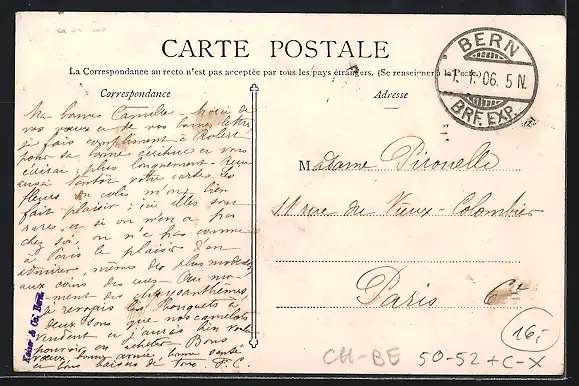 CARTE POSTALE
La Correspondance au recto n'est pas acceptée par tous les pays étrangers. (Se renseigner à la Poste.)
Correspondance
Adresse
BERN
1. 06. 5 N.
BRF. EXP.
Ma bonne Camille – Merci de
vos vœux et de vos bonnes lettres
je fais compliment à Robert
pour sa bonne écriture et vous
écrirai plus longuement. Reçu
aussi tantôt votre carte, les
fleurs en colis m'ont bien
fait plaisir; ici elles sont
rares et si on n'en a pas
chez soi, on n'a pas comme
à Paris le plaisir d'en
admirer, même des plus modestes
aux coins des rues. Au mo-
ment des chrysanthèmes
je revoyais les bouquets à
deux sous que nos camelots
vendent et j'aurais bien voulu
pouvoir en acheter. Bons
vœux, bonne année, bonne santé
et bons baisers de tous. F. C.
Madame Pironelle
rue du Vieux-Colombier
Paris 6e
16,-
CH-BE
50-52 + C-X